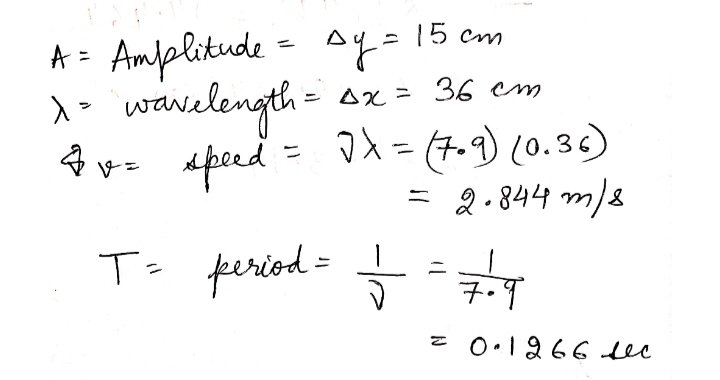 A = Amplitude = Δy = 15 cm
λ = wavelength = Δx = 36 cm
& v = speed = νλ = (7.9) (0.36)
= 2.844 m/s
T = period = 1/ν = 1/7.9
= 0.1266 sec